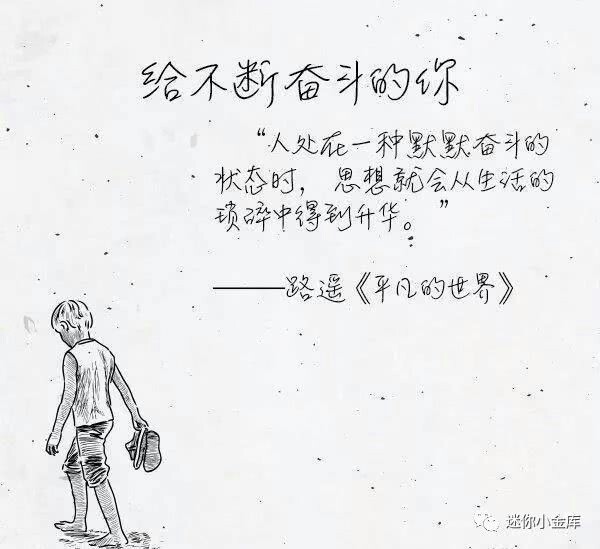 给不断奋斗的你
“人处在一种默默奋斗的
状态时，思想就会从生活的
琐碎中得到升华。”
——路遥《平凡的世界》
迷你小金库